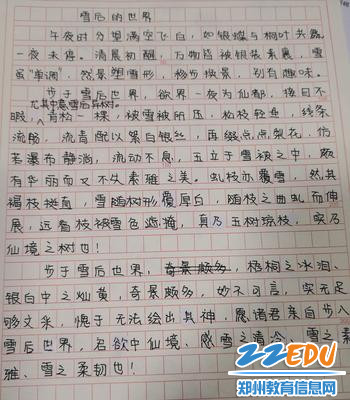 雪后的世界
午夜时分望满空飞白，如银蝶与桐叶共舞
一夜未停。清晨初醒，万物皆被银装素裹，雪
虽"单调"，然景塑雪形，移步换景，别有趣味。
步于雪后世界，欲界一夜为仙都，接目不
尤其中意雪后异树。
暇，青松一棵，被雪被所压，松枝轻垂，线条
流畅，流青配以絮白银丝，再缀点点梨花，仿
若瀑布静淌，流动不息，玉立于雪被之中，颇
有华丽而又不失素雅之美。虬枝亦覆雪，然其
褐枝挺直，雪随树形覆厚白，随枝之曲虬而伸
展，远看枝被雪色遮掩，真乃玉树琼枝，实乃
仙境之树也！
步于雪后世界，奇景颇多，梧桐之冰泪、
银白中之灿黄，奇景颇多，妙不可言，实无足
够文采，愧于无法绘出其神，愿诸君亲自步入
雪后世界，名欲中仙境，感雪之清冷、雪之素
雅、雪之柔韧也！
ZZEDU
郑州教育信息网